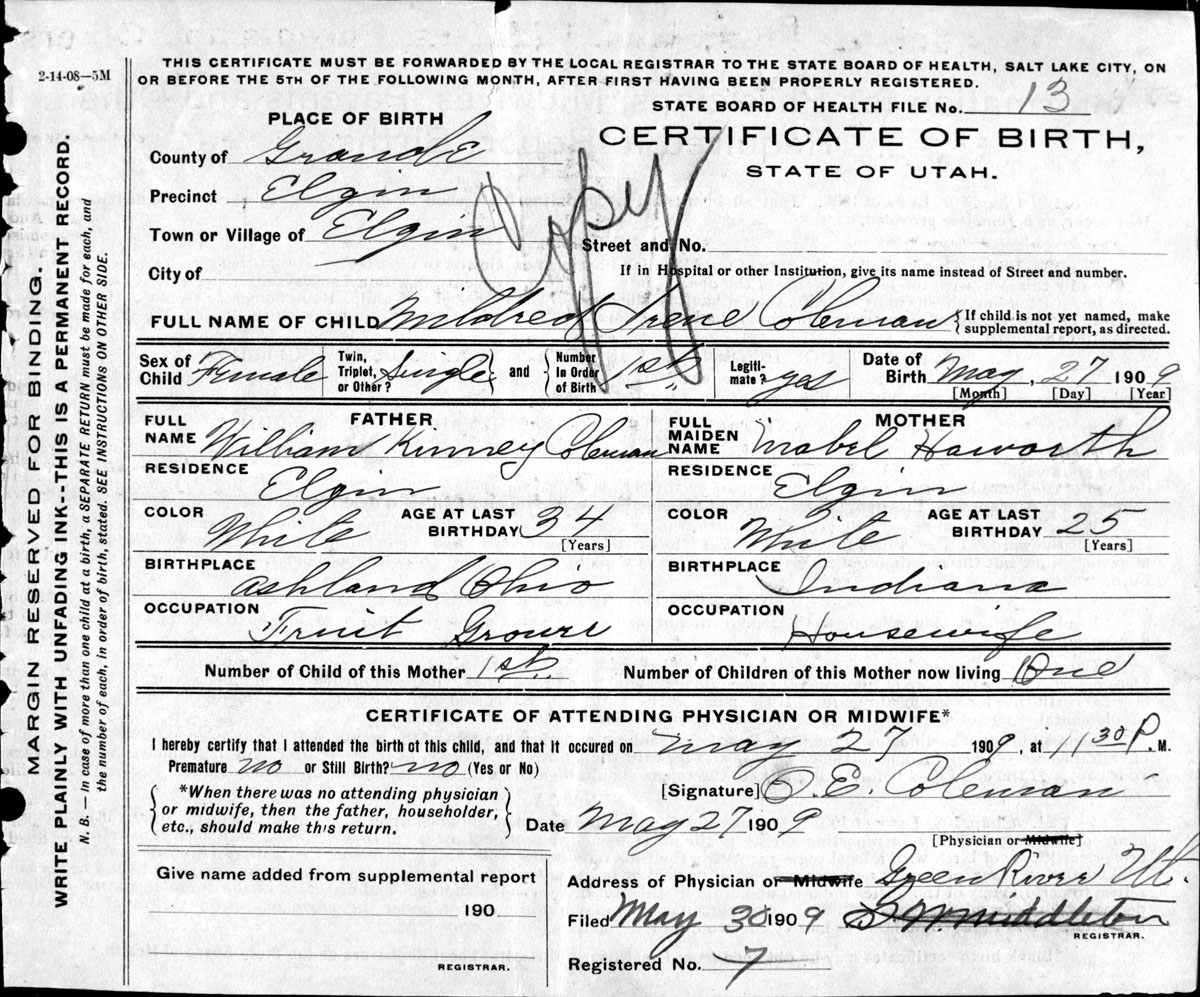 2-14-08—5M
THIS CERTIFICATE MUST BE FORWARDED BY THE LOCAL REGISTRAR TO THE STATE BOARD OF HEALTH, SALT LAKE CITY, ON
OR BEFORE THE 5TH OF THE FOLLOWING MONTH, AFTER FIRST HAVING BEEN PROPERLY REGISTERED.
STATE BOARD OF HEALTH FILE No. 13
PLACE OF BIRTH
CERTIFICATE OF BIRTH,
STATE OF UTAH.
Copy
County of Grand
Precinct Elgin
Town or Village of Elgin
Street and No.
City of
If in Hospital or other Institution, give its name instead of Street and number.
FULL NAME OF CHILD Mildred Irene Coleman {If child is not yet named, make
supplemental report, as directed.
Sex of Child Female Twin, Triplet, or Other? Single and Number In Order of Birth 1st Legiti-mate? yes Date of Birth May, 27 1909
[Month] [Day] [Year]
FATHER
FULL NAME William Kinney Coleman
RESIDENCE Elgin
COLOR White AGE AT LAST BIRTHDAY 34
[Years]
BIRTHPLACE Ashland Ohio
OCCUPATION Fruit Grower
MOTHER
FULL MAIDEN NAME Mabel Haworth
RESIDENCE Elgin
COLOR White AGE AT LAST BIRTHDAY 25
[Years]
BIRTHPLACE Indiana
OCCUPATION Housewife
Number of Child of this Mother 1st Number of Children of this Mother now living One
CERTIFICATE OF ATTENDING PHYSICIAN OR MIDWIFE*
I hereby certify that I attended the birth of this child, and that it occured on May 27 1909, at 11 30 P. M.
Premature no or Still Birth? no (Yes or No)
*When there was no attending physician
or midwife, then the father, householder,
etc., should make this return.
[Signature] O. E. Coleman
Date May 27 1909
[Physician or Midwife]
Give name added from supplemental report
190
REGISTRAR.
Address of Physician or Midwife Green River Ut.
Filed May 30 1909 G W Middleton
REGISTRAR.
Registered No. 7
MARGIN RESERVED FOR BINDING.
WRITE PLAINLY WITH UNFADING INK--THIS IS A PERMANENT RECORD.
N. B. — In case of more than one child at a birth, a SEPARATE RETURN must be made for each, and
the number of each, in order of birth, stated. SEE INSTRUCTIONS ON OTHER SIDE.